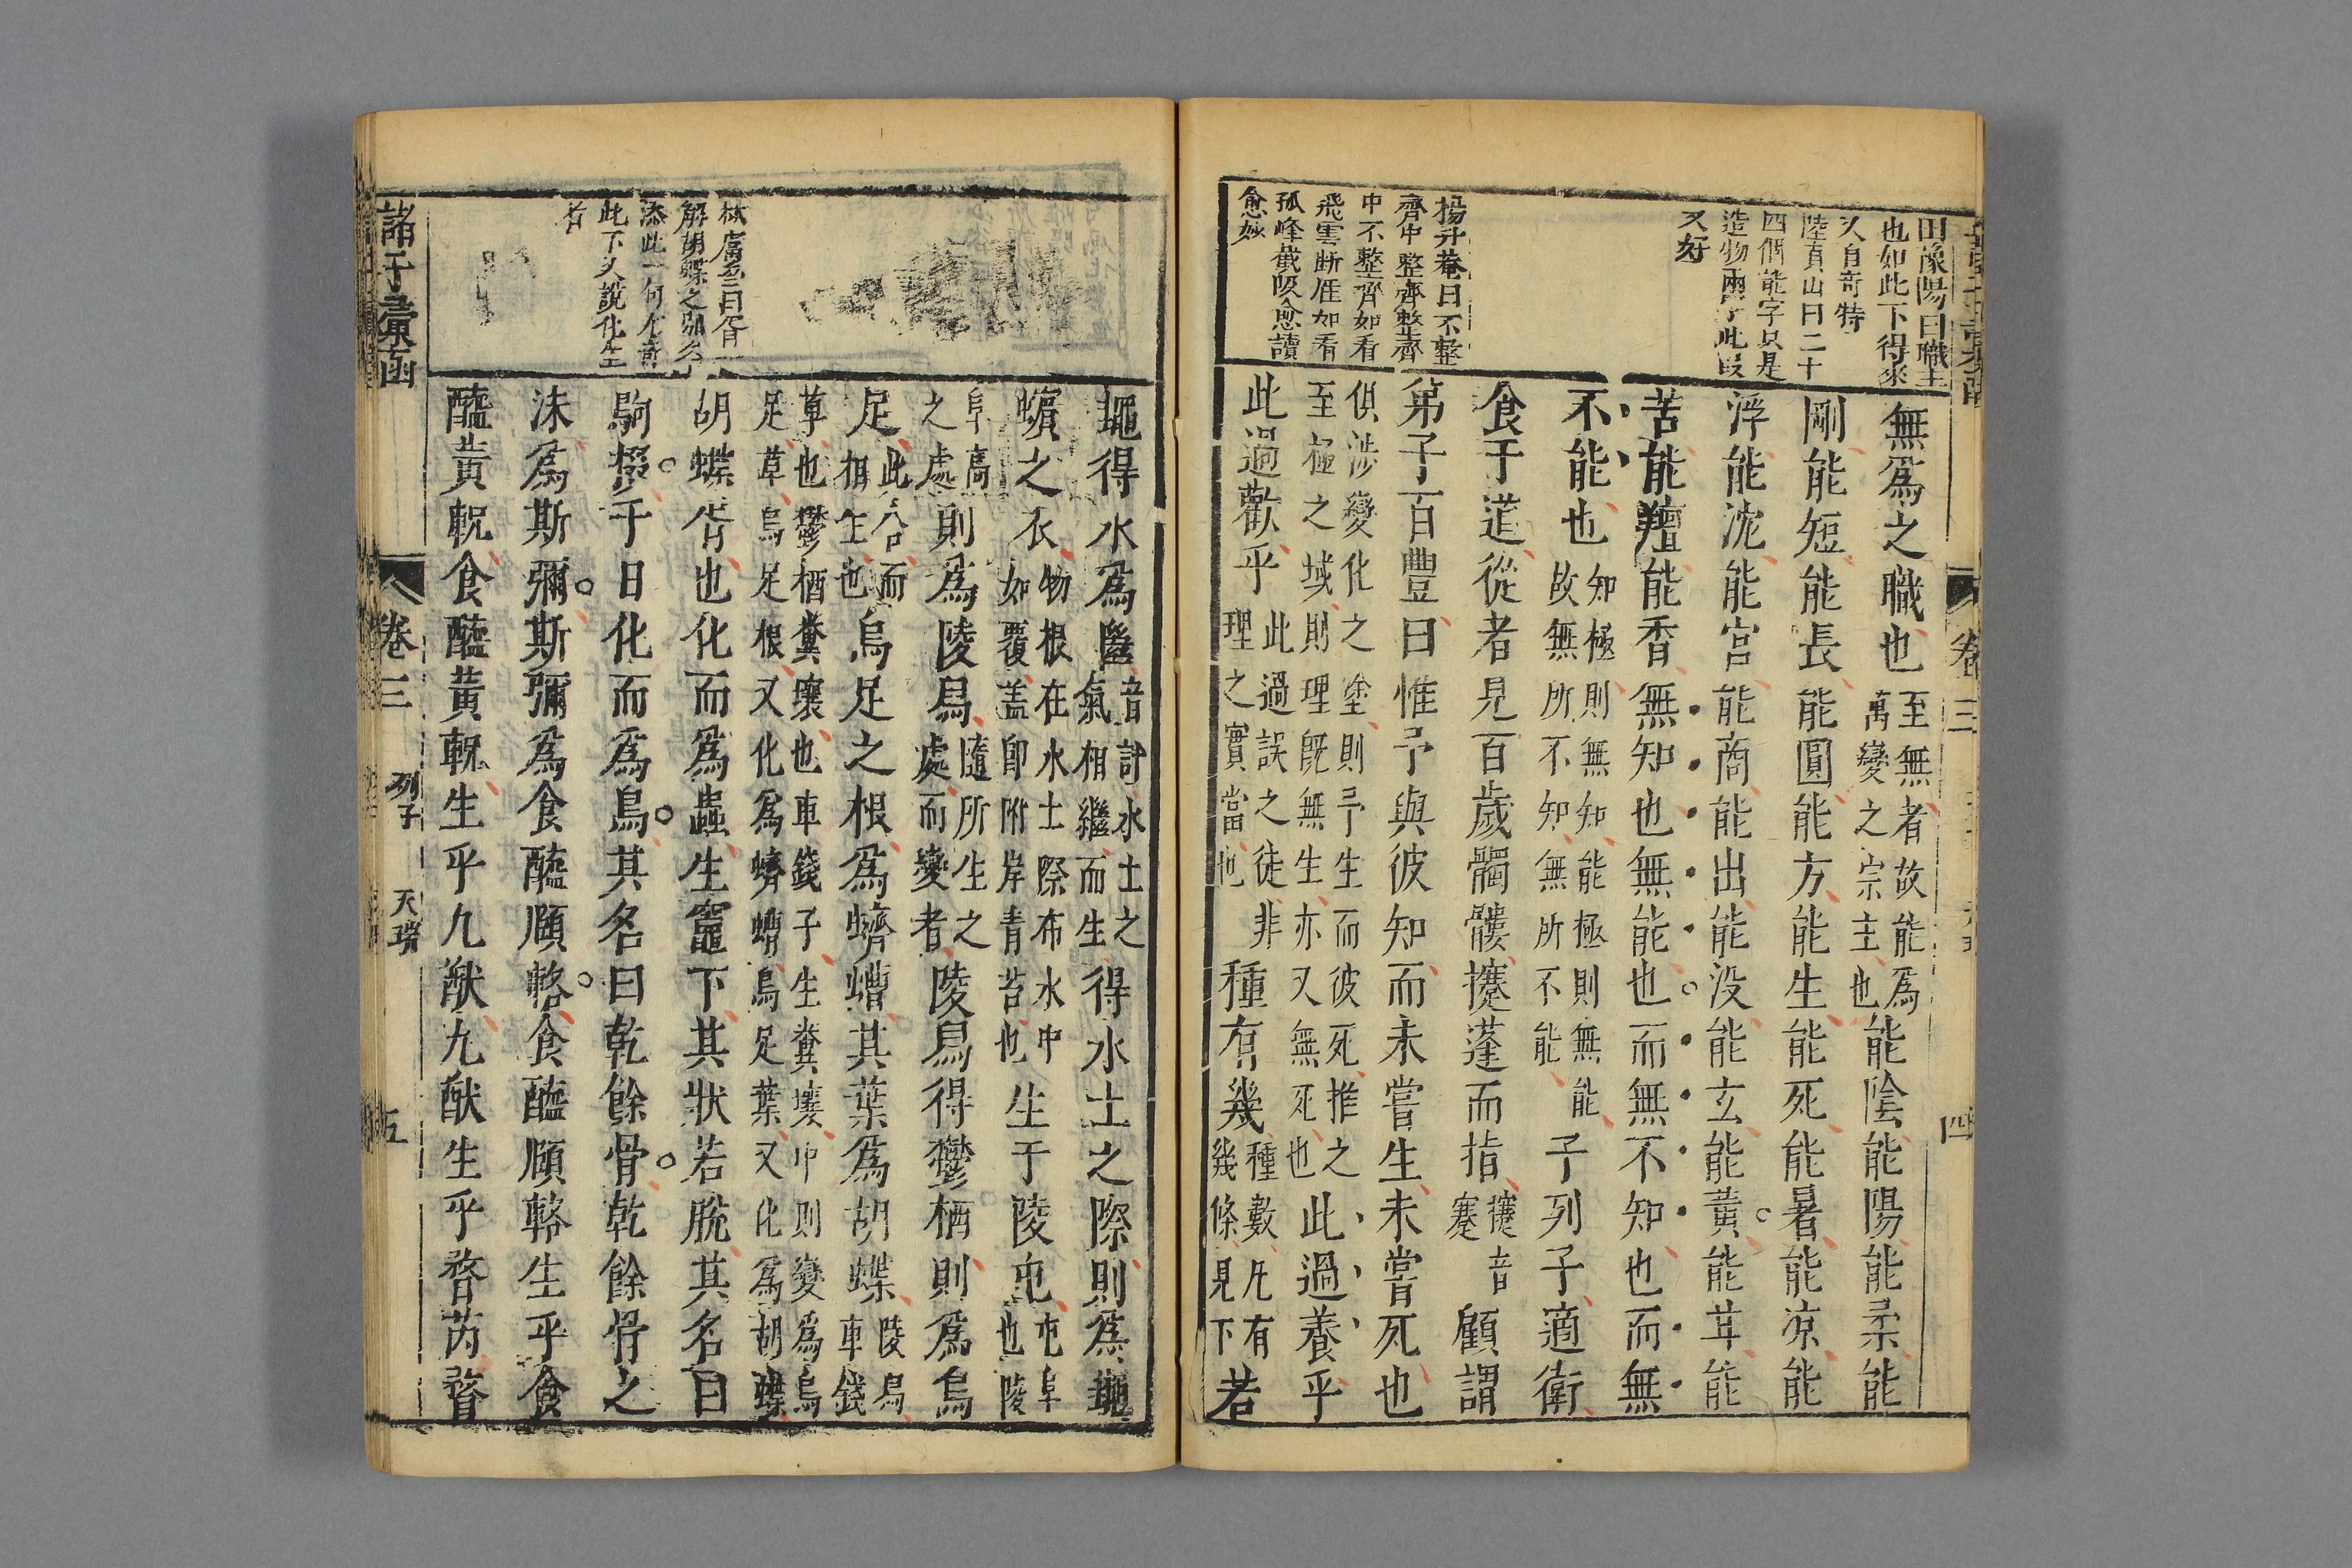 田豫陽曰職主
也如此下得來
乂自奇特
陸貞山曰二十
四個能字只是
造物兩字此段
又好
楊升菴曰不整
齊中整齊整齊
中不整齊如看
飛雲斷崖如看
孤峰截阪愈讀
愈妙
無爲之職也至無者故能爲
萬變之宗主也能陰能陽能柔能
剛能短能長能圓能方能生能死能暑能凉能
浮能沈能宮能商能出能没能玄能黃能甘能
苦能羶能香無知也無能也而無不知也而無
不能也知極則無知能極則無能
故無所不知無所不能子列子適衛
食于道從者見百歲髑髏攓蓬而指攓音
蹇顧謂
弟子百豐曰惟予與彼知而未嘗生未嘗死也
俱涉變化之塗則予生而彼死推之
至極之域則理旣無生亦又無死也此過養乎
此過歡乎此過誤之徒非
理之實當也種有幾種數凡有
幾條見下若
卷三
四
鼃得水爲㡭音計水土之
氣相繼而生得水土之際則爲鼃
蠙之衣物根在水土際布水中
如覆盖卽附岸青苔也生于陵屯屯阜
也陵
阜高
之處則爲陵舃隨所生之
處而變者陵舃得鬱栖則爲烏
足此合而
相生也烏足之根爲蠐螬其葉爲胡蝶陵舃
車錢
草也鬱栖糞壤也車錢子生糞壤中則變爲烏
足草烏足根又化爲蠐螬烏足葉又化爲胡蝶
胡蝶胥也化而爲蟲生竈下其狀若脫其名曰
駒掇千日化而爲鳥其名曰乾餘骨乾餘骨之
沬爲斯彌斯彌爲食醯頤輅食醯頤輅生乎食
醯黃軦食醯黃軦生乎九猷九猷生乎瞀芮瞀
林鬳齋曰胥一
解胡蝶之別名
添此一句尤奇
此下乂說化生
者
諸子彙函
卷三
列子
天瑞
五